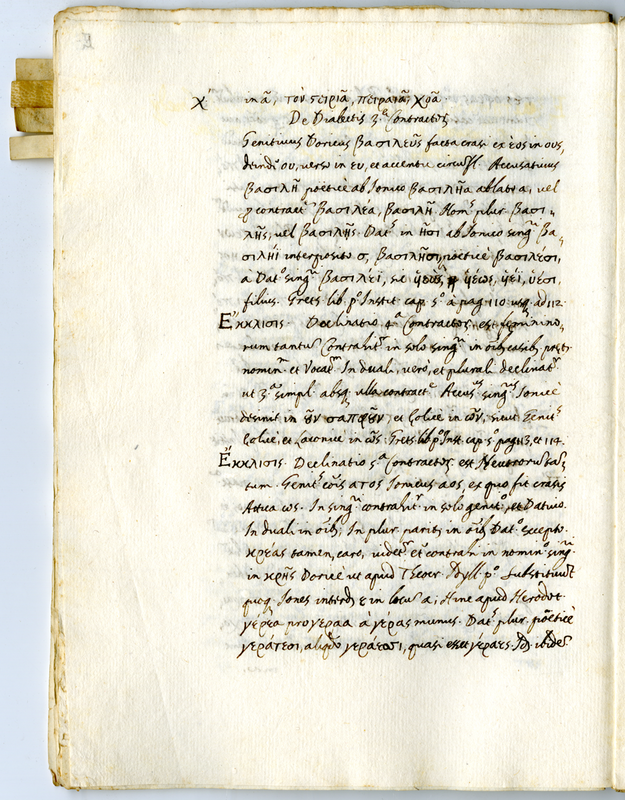 χ in ᾶ, τὸν πειριᾶ, πειραιᾶ, χοᾶ
De Diabetis 3.ᵃ Contractoʒ
Genitiuus Doricus βασιλεῦς facta crasi ex εος in ους,
deinde ου, verso in ευ, et accentu circūfl. Accusatiuus
βασιλῆ poeticè ab Ionico βασιλῆα ablat α, vel
ꝑ contract βασιλέα, βασιλῆ. Nomˢ plur. βασι-
λῆς, vel βασιλῇς. Datˢ in ῆσι ab Ionico singˡ βα-
σιλῆϊ interposito σ, βασιλῆσι, poeticè βασιλέσι,
à Datᵒ singˡ βασιλέϊ, sic ὑέως, ὑέϊ, ὑέσι.
filius. Grets. lib. pᵒ Instit. cap. 5ᵒ à pag. 110 usq ad 112.
Ἔκκλισις. Declinatio 4.ᵃ Contractoʒ, est feminino-
rum tantū. Contrahitˡ in solo singˡ in oībʒ casibʒ pręt
nominˡ et Vocatˡ. In duali, verò, et plurali declinatˡ
ut 3.ᵃ simpl. absq ulla contractᵉ. Accusˢ singˢ Ionicè
desinit in οῦν σαπφοῦν, et Eolicè in ὼν, sicut Genitˢ
Eolicè, et Laconicè in ῶς. Grets. lib. pᵒ Inst. cap. 5ᵒ pag. 113, et 114.
Ἔκκλισις. Declinatio 5.ᵃ Contractoʒ est Neutrorū tan-
tum. Genitˢ ατος Ionicus αος, ex quo fit crasis
Attica ως. In singˡ contrahitˡ in solo genitᵒ, et Datiuo.
In duali in oībʒ, In plur. pariter in oībʒ Datᵒ excepto.
κρέας tamen, caro, videtˡ et contrahi in nominᵒ singˡ
in κρῆς Doricè ut apud Theocr. Idyll. pᵒ Substituūt
quoq Iones interdū ε in locū α, Hinc apud Herodot.
γέρεα pro γέραα à γέρας munus. Datˢ plur. poëticè
γεράτεσι, aliqdo γεράεσσι, quasi esset γέραες. Id. ibidē.